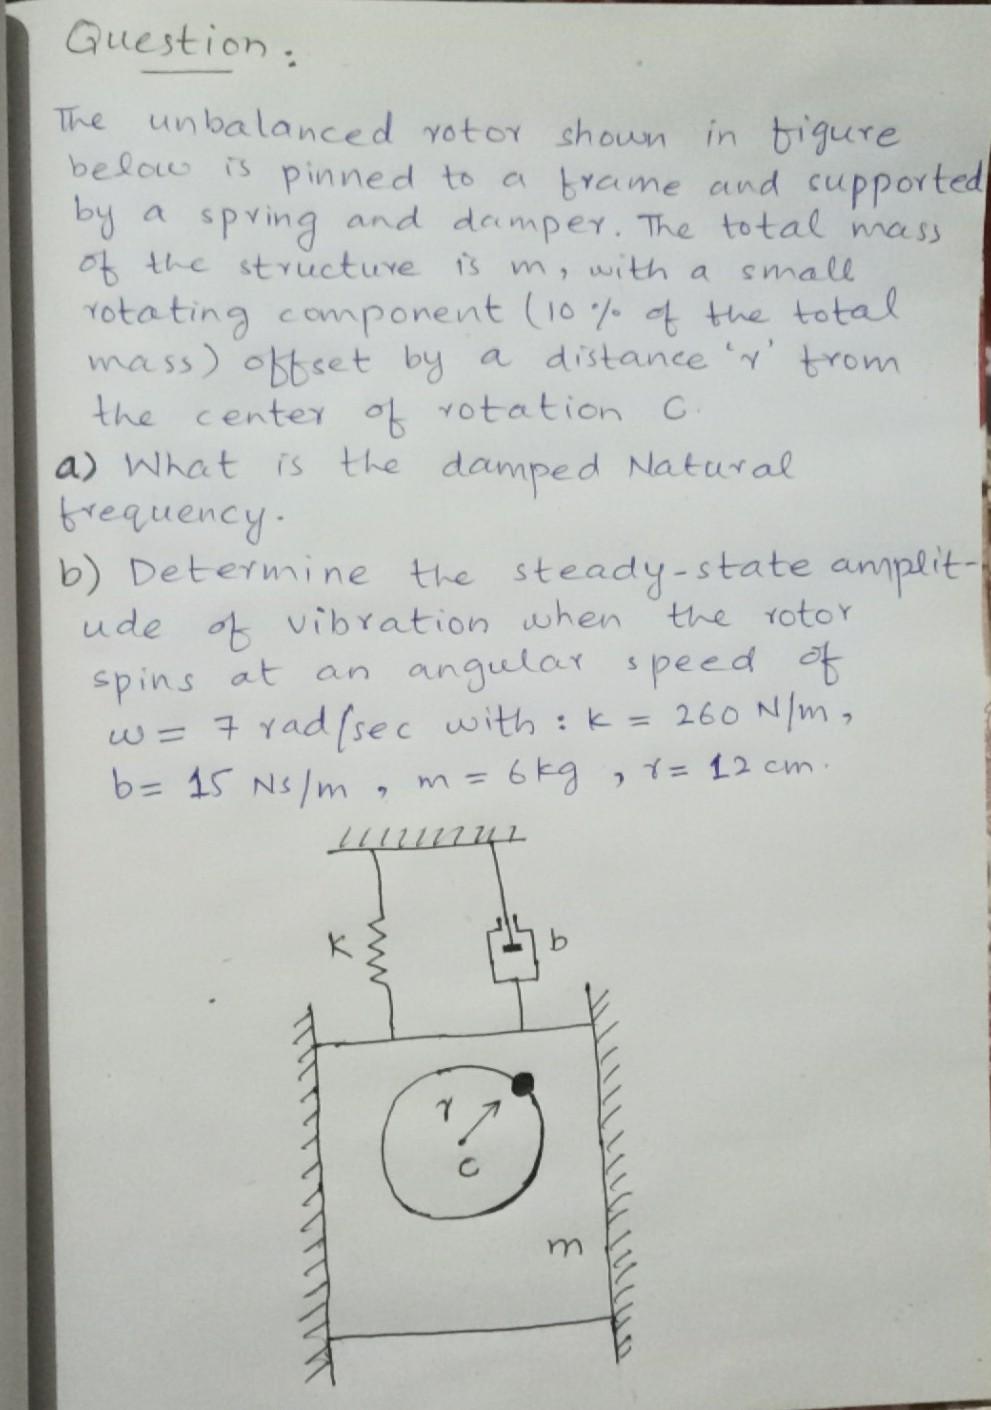 Question:
The unbalanced rotor shown in figure
below is pinned to a frame and supported
by a spring and damper. The total mass
of the structure is m, with a small
rotating component (10% of the total
mass) offset by a distance 'r' from
the center of rotation C.
a) What is the damped Natural
frequency.
b) Determine the steady-state amplit-
ude of vibration when the rotor
spins at an angular speed of
w = 7 rad/sec with : k = 260 N/m,
b = 15 Ns/m, m = 6kg, r = 12 cm.
K
b
r
C
m